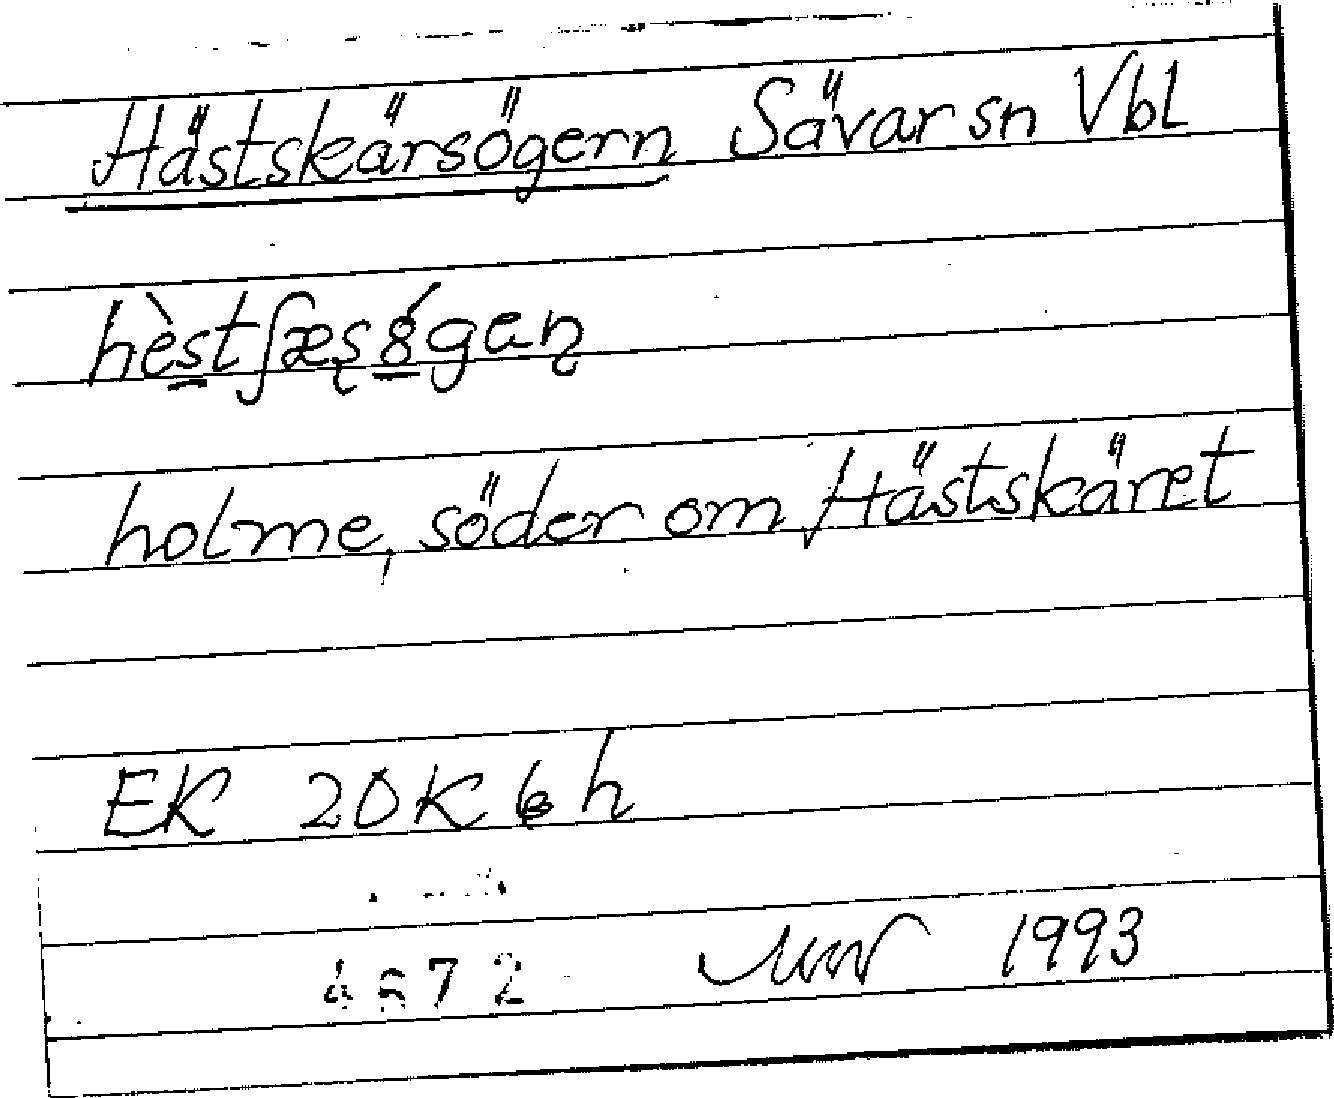 Hästskärsögern Sävar sn Vbl
hèstʃæʂ8́gaɳ
holme, söder om Hästskäret
EK 20K 6 h
1993